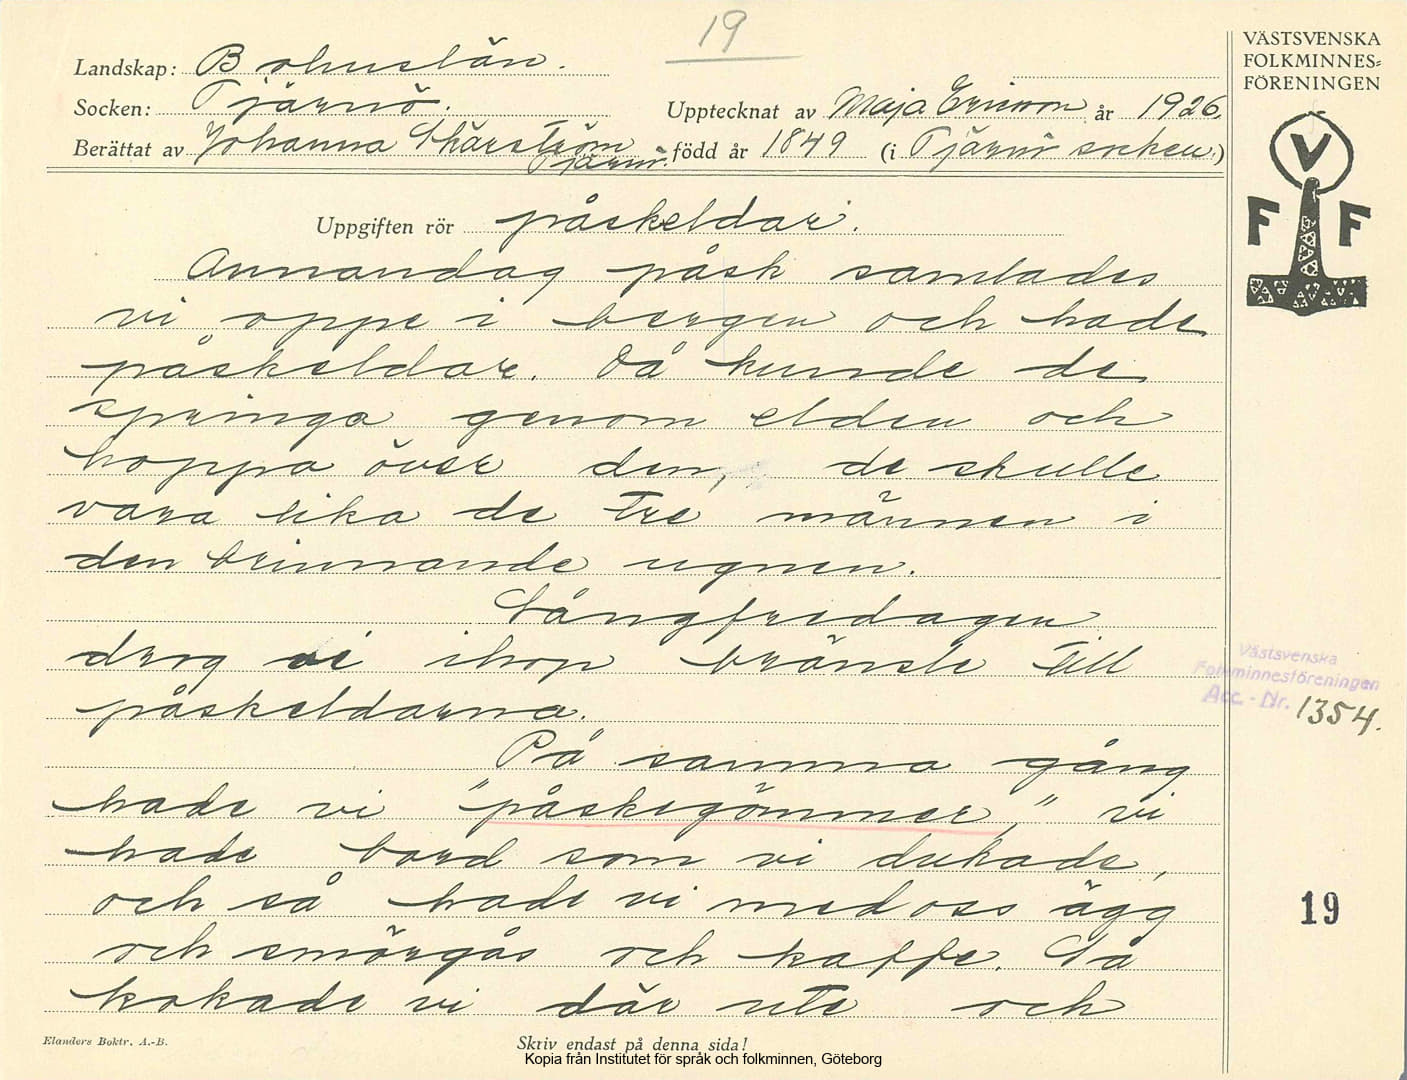 19
Landskap: Bohuslän.
Socken: Tjärnö.
Upptecknat av Maja Ericson år 1926.
Berättat av Johanna Skärström
Tjärnö.
född år 1849 (i Tjärnö socken.)
VÄSTSVENSKA
FOLKMINNES=
FÖRENINGEN
V
F F
Uppgiften rör påskeldar.
Annandag påsk samlades
vi oppe i bergen och hade
påskeldar. Då kunde de
springa genom elden och
hoppa över den, de skulle
vara lika de tre männen i
den brinnande ugnen.
Långfredagen
drog vi ihop bränsle till
påskeldarna.
På samma gång
hade vi "påskegömmer," vi
hade bord som vi dukade,
och så hade vi med oss ägg
och smörgås och kaffe. Så
kokade vi där ute och
Västsvenska
Folkminnesföreningen
Acc.-Nr. 1354.
19
Elanders Boktr. A.-B.
Skriv endast på denna sida!
Kopia från Institutet för språk och folkminnen, Göteborg